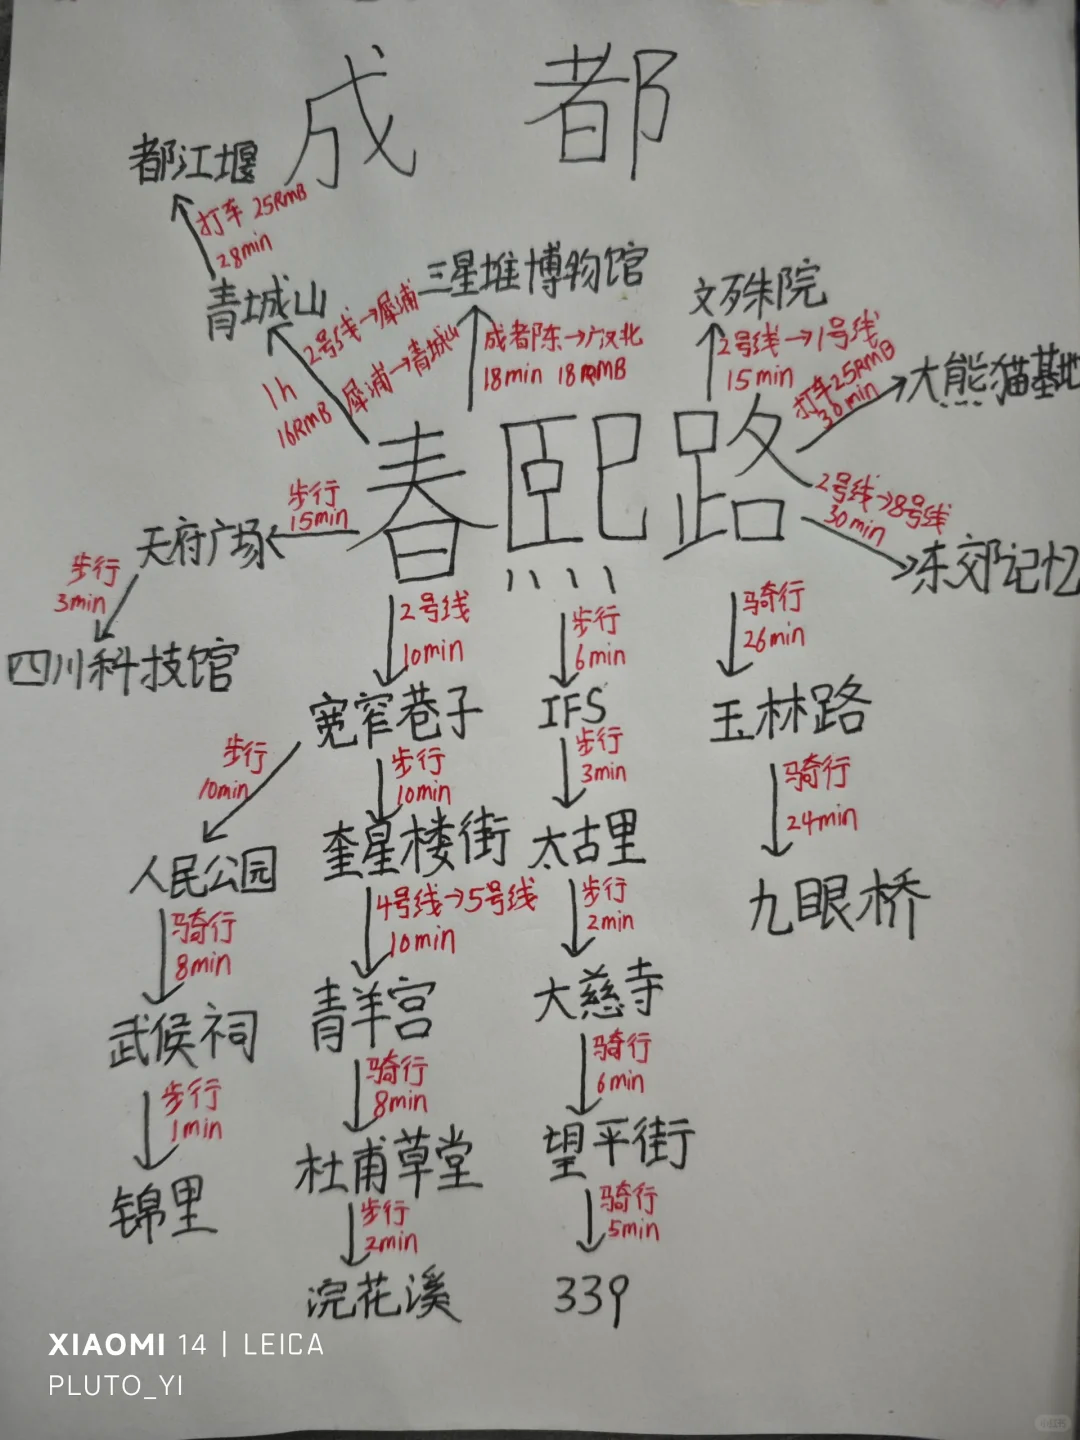 成都
都江堰
打车 25RMB
28min
青城山
2号线→犀浦
犀浦→青城山
1h
16RMB
三星堆博物馆
成都东→广汉北
18min 18RMB
文殊院
2号线→1号线
15min
打车25RMB
30min
大熊猫基地
春熙路
2号线→8号线
30min
东郊记忆
步行
15min
天府广场
步行
3min
四川科技馆
2号线
10min
宽窄巷子
步行
10min
人民公园
骑行
8min
武侯祠
步行
1min
锦里
步行
10min
奎星楼街
4号线→5号线
10min
青羊宫
骑行
8min
杜甫草堂
步行
2min
浣花溪
步行
6min
IFS
步行
3min
太古里
步行
2min
大慈寺
骑行
6min
望平街
骑行
5min
339
骑行
26min
玉林路
骑行
24min
九眼桥
XIAOMI 14 | LEICA
PLUTO_YI
小红书